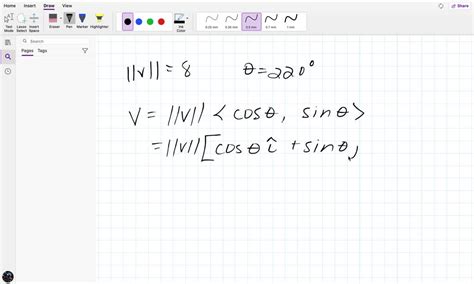 Home Insert Draw View
Share
Undo Redo Text Lasso Insert Eraser Pen Marker Highlighter Ink Color 0.25 mm 0.35 mm 0.5 mm 0.7 mm 1 mm
Search
Pages Tags
||v|| = 8 θ = 220°
v = ||v|| < cosθ, sinθ >
= ||v|| [cosθ î + sinθ,